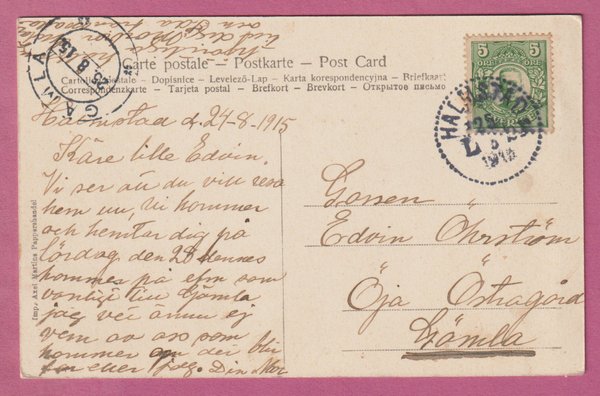 Carte postale – Postkarte – Post Card
Cartolina postale – Dopisnice – Levelező-Lap – Karta korespondencyjna – Briefkaart
Correspondenzkarte – Tarjeta postal – Brefkort – Brevkort – Открытое письмо
Halmstad d. 24-8-1915
Käre lille Edvin.
Vi ser att du vill resa
hem nu, vi kommer
och hemtar dig på
lördag, den 28 dennes
kommer på efm som
vanligt till Gömla
jag vet ännu ej
vem av oss som
kommer om der blir
far eller jag. Din Mor
Gossen
Edvin Öhrström
Öja Östragård
Gömla
5 5
ÖRE
HALMSTAD
25 8
L
1915
25 8 15
LA
Imp. Axel Martins Pappershandel